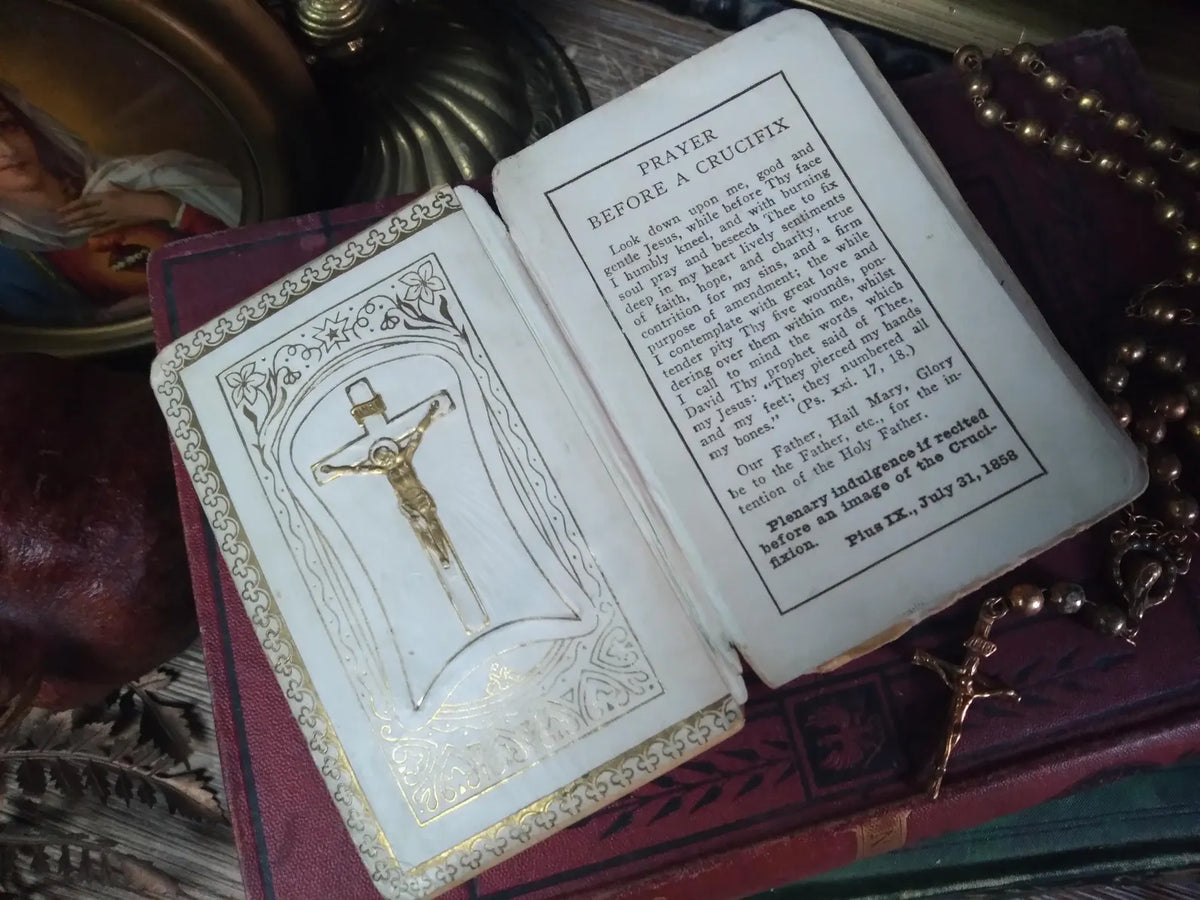 PRAYER
BEFORE A CRUCIFIX
Look down upon me, good and
gentle Jesus, while before Thy face
I humbly kneel, and with burning
soul pray and beseech Thee to fix
deep in my heart lively sentiments
of faith, hope, and charity, true
contrition for my sins, and a firm
purpose of amendment; the while
I contemplate with great love and
tender pity Thy five wounds, pon-
dering over them within me, whilst
I call to mind the words which
David Thy prophet said of Thee,
my Jesus: "They pierced my hands
and my feet; they numbered all
my bones." (Ps. xxi. 17, 18.)
Our Father, Hail Mary, Glory
be to the Father, etc., for the in-
tention of the Holy Father.
Plenary indulgence if recited
before an image of the Cruci-
fixion.
Pius IX., July 31, 1858